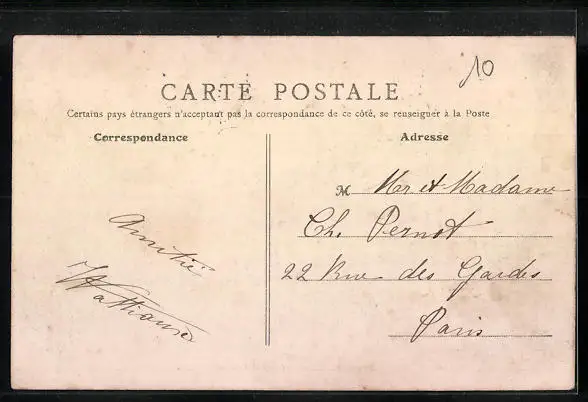 10
CARTE POSTALE
Certains pays étrangers n'acceptant pas la correspondance de ce côté, se renseigner à la Poste
Correspondance
Amitié
Adresse
M Mr et Madame
Ch. Pernot
22 Rue des Gardes
Paris